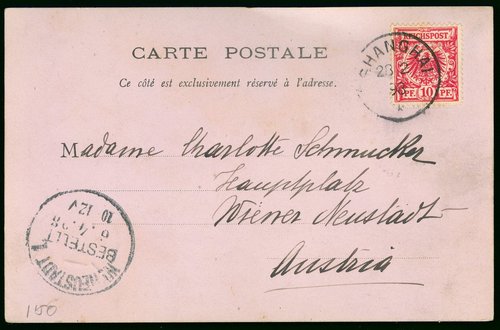 CARTE POSTALE
Ce côté est exclusivement réservé à l'adresse.
REICHSPOST
PF. 10 PF.
SHANGHAI
Madame Charlotte Schmucker
Hauptplatz
Wiener Neustadt
Austria
WR. NEUSTADT 1
BESTELLT
6/4 98
10 12V
150